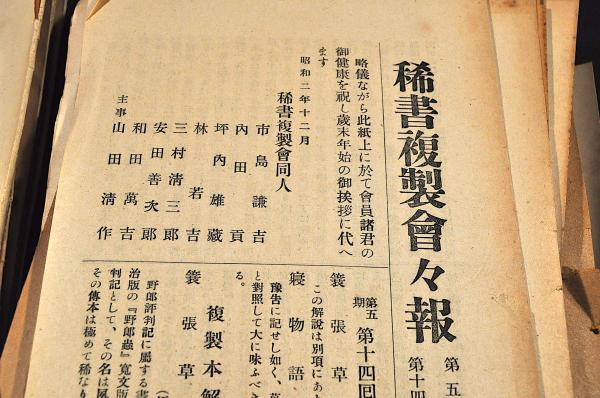 稀書複製會々報
第五
第十四
略儀ながら此紙上に於て會員諸君の
御健康を祝し歳末年始の御挨拶に代へ
ます
昭和二年十二月
稀書複製會同人
市島謙吉
內田貢
坪內雄藏
林若吉
三村清三郎
安田善次郎
和田萬吉
主事 山田清作
第五期 第十四回
簑張草
この解說は別項にあ
寢物語
豫告に記せし如く、
と對照して大に味ふべき
る。
複製本解
簑張草
野郎評判記に屬する書
治版の『野郎蟲』寬文版
判記として、その名は夙
その傳本は極めて稀なり